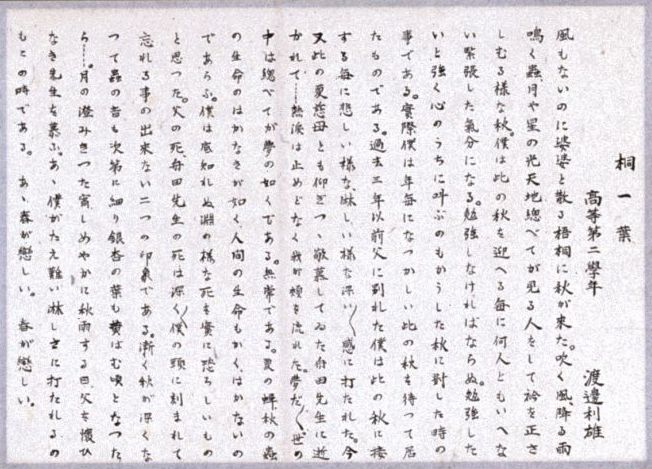 桐一葉
高等第二學年　渡邊利雄
風もないのに婆娑と散る梧桐に秋が来た。吹く風、降る雨
鳴く蟲月や星の光天地總べてが見る人をして衿を正さ
しむる様な秋。僕は此の秋を迎へる毎に何人ともいへな
い緊張した氣分になる。勉強しなければならぬ。勉強した
いと強く心のうちに叫ぶのもかうした秋に對した時の
事である。實際僕は年毎になつかしい此の秋を待つて居
たものである。過去三年以前父に別れた僕は此の秋に接
する毎に悲しい様な、淋しい様な深い〱感に打たれた。今
又此の夏慈母とも仰ぎつゝ敬慕してゐた舟田先生に逝
かれて……熱涙は止めどなく我が頬を流れた。夢だ〱世の
中は總べてが夢の如くである。無常である。夏の蝉秋の蟲
の生命のはかなさが如く人間の生命もかく、はかないの
であらふ。僕は底知れぬ淵の様な死を實に恐ろしいもの
と思つた。父の死、舟田先生の死は深く〱僕の頭に刻まれて
忘れる事の出來ない二つの印象である。漸く秋が深くな
つて蟲の音も次第に細り銀杏の葉も黄ばむ頃となつた
ら……。月の澄みきつた宵しめやかに秋雨する日父を懐ひ
なき先生を慕ふ。あゝ僕がたえ難い淋しさに打たれるの
もこの時である。あゝ春が戀しい。春が戀しい。